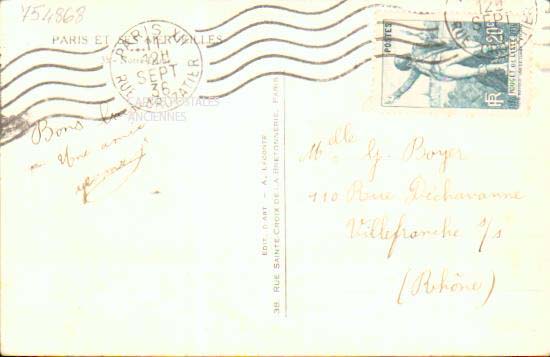 754868
PARIS ET SES MERVEILLES
PARIS
12H
SEPT
36
CARTES POSTALES
ANCIENNES
Bons
Une amie
EDIT. D'ART - A. LECONTE
38, RUE SAINTE-CROIX DE LA BRETONNERIE, PARIS
POSTES
20c
RF
ROUGET DE LISLE
12H
SEPT
Melle G. Boyer
110 Rue Déchavanne
Villefranche s/s
(Rhône)